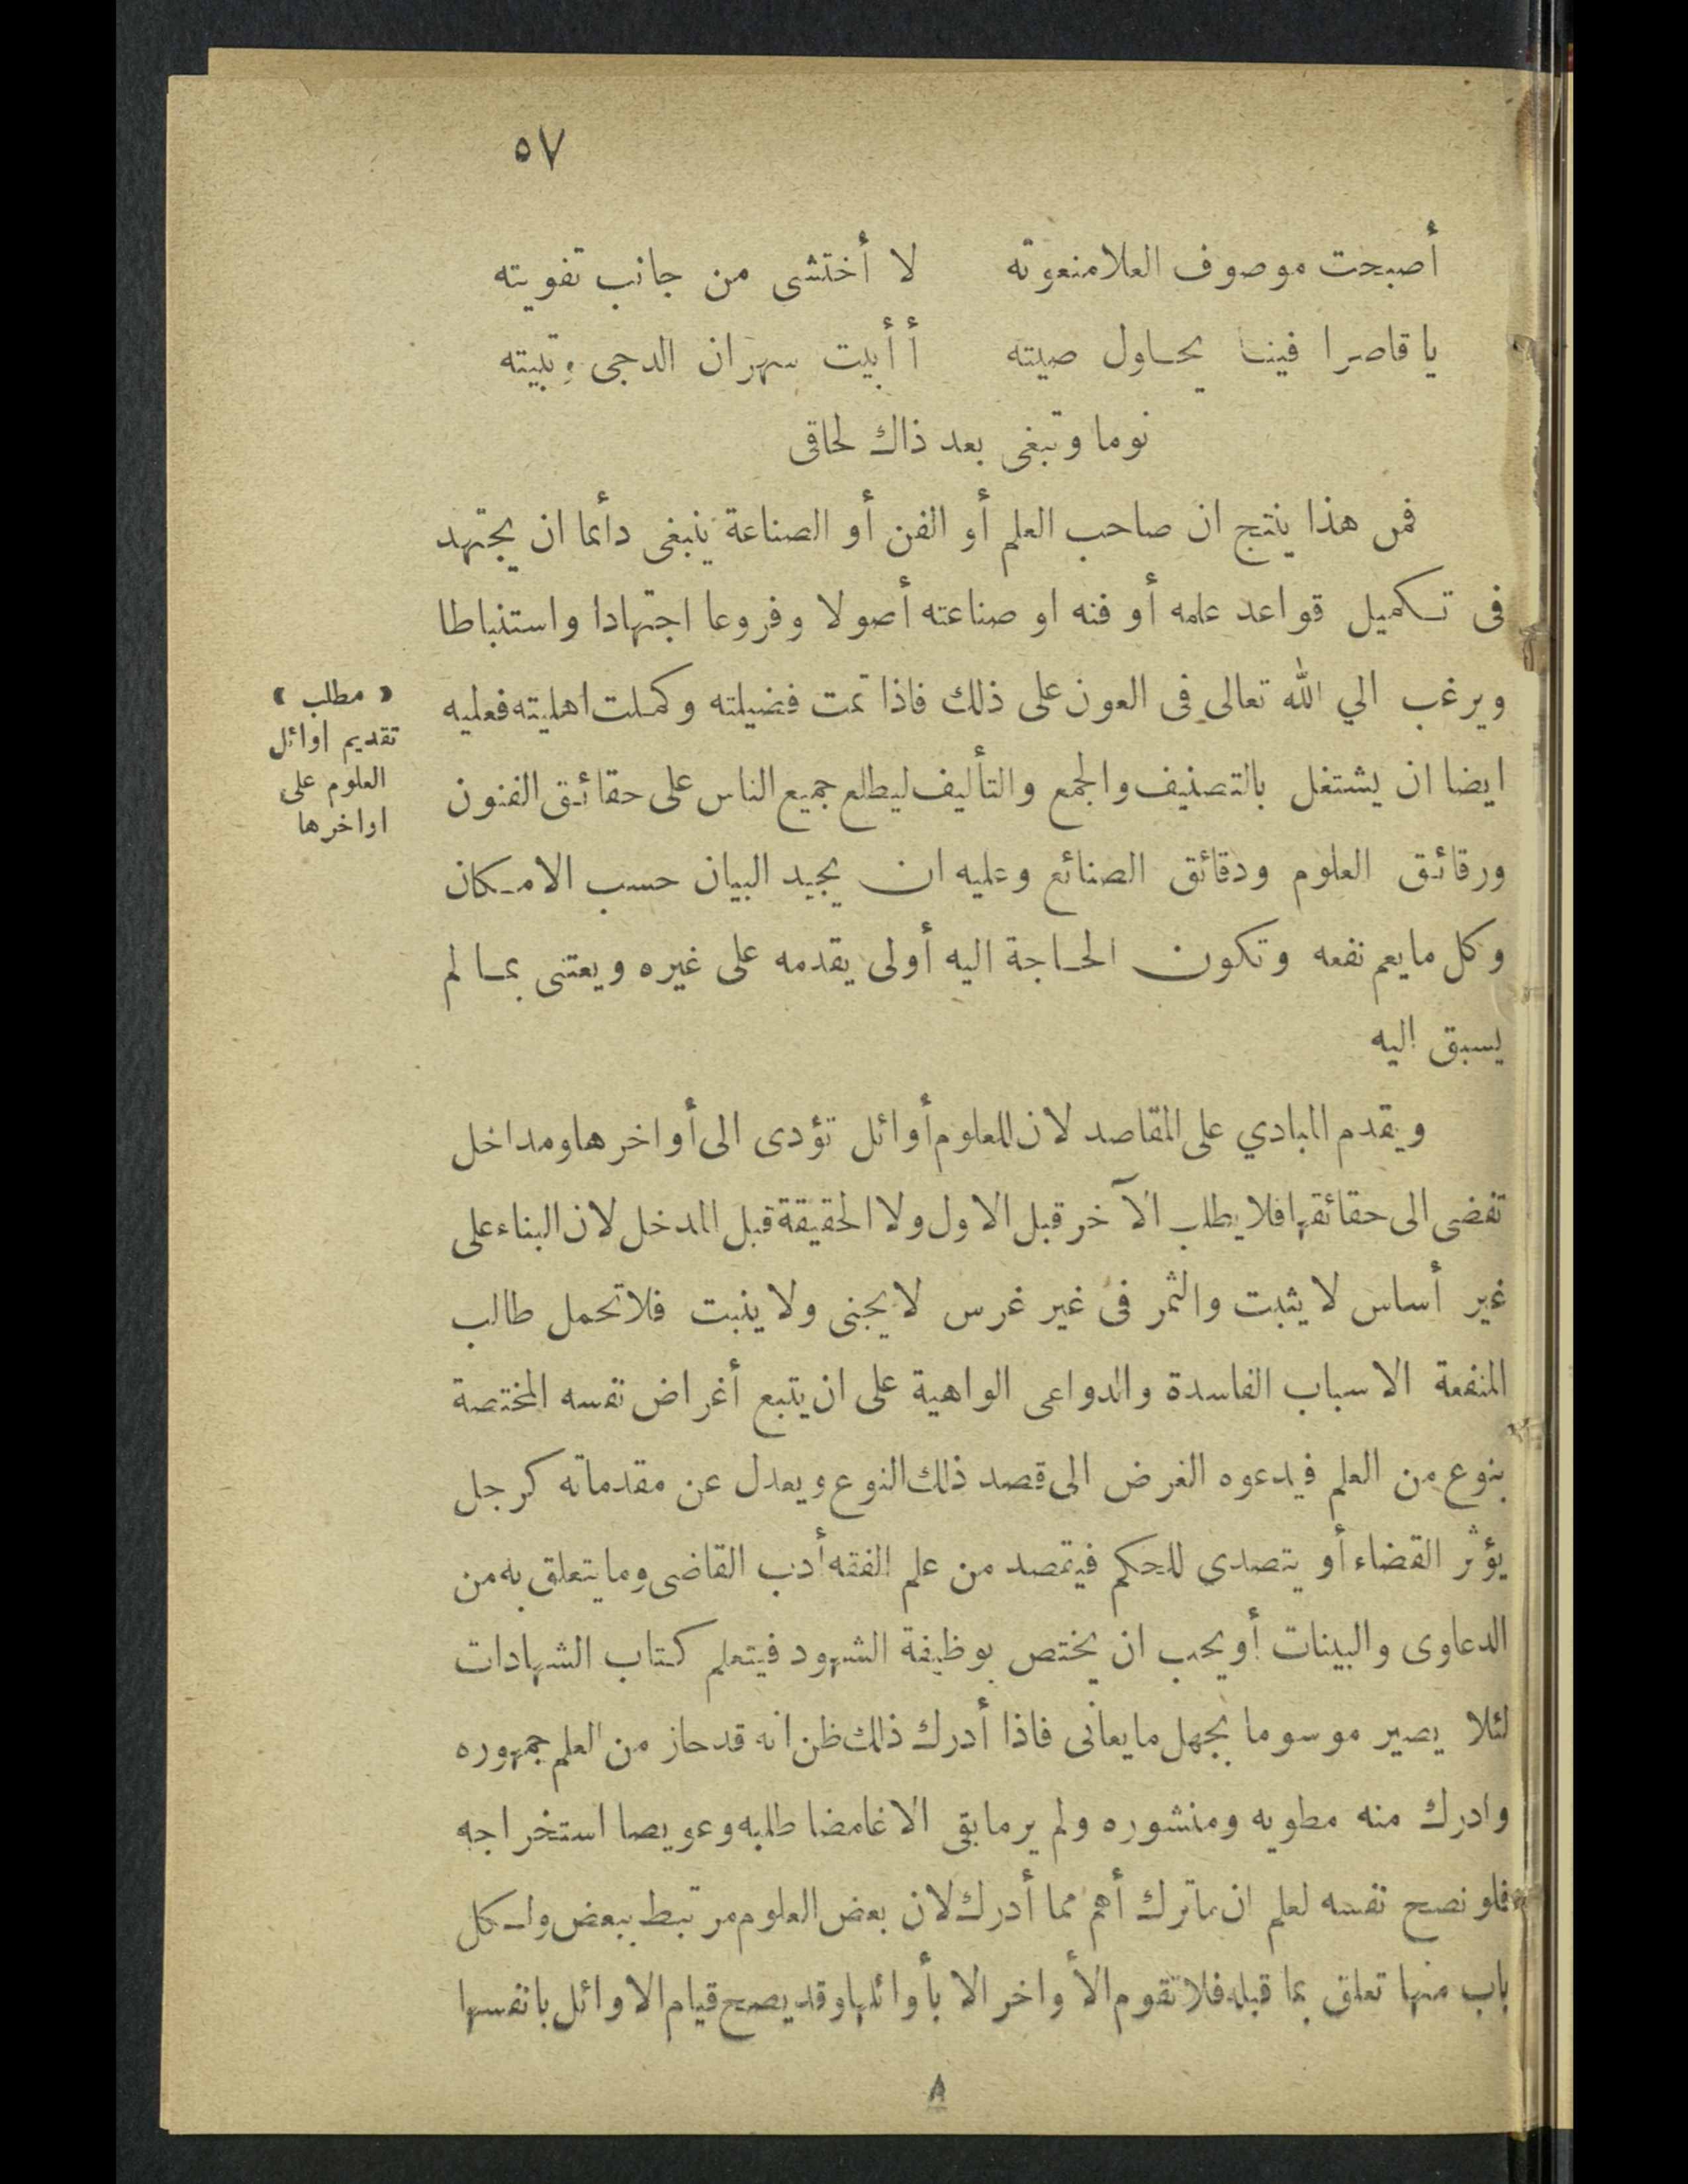 ٥٧
أصبحت موصوف العلا منعوته لا أختشى من جانب تفويته
يا قاصرا فينا يحاول صيته أأبيت سهران الدجى وتبيته
نوما وتبغى بعد ذاك لحاقى
فمن هذا ينتج ان صاحب العلم أو الفن أو الصناعة ينبغى دأئما ان يجتهد
فى تكميل قواعد علمه أو فنه او صناعته أصولا وفروعا اجتهادا واستنباطا
ويرغب الي الله تعالى فى العون على ذلك فاذا تمت فضيلته وكملت اهليته فعليه
ايضا ان يشتغل بالتصنيف والجمع والتأليف ليطلع جميع الناس على حقائق الفنون
ورقائق العلوم ودقائق الصنائع وعليه ان يجيد البيان حسب الامكان
وكل ما يعم نفعه وتكون الحاجة اليه أولى يقدمه على غيره ويعتنى بما لم
يسبق اليه
﴿ مطلب ﴾
تقديم اوائل
العلوم على
اواخرها
ويقدم المبادي على المقاصد لان للعلوم أوائل تؤدى الى أواخرها ومداخل
تفضى الى حقائقها فلا يطلب الآخر قبل الاول ولا الحقيقة قبل المدخل لان البناء على
غير أساس لا يثبت والثمر فى غير غرس لا يجنى ولا ينبت فلا تحمل طالب
المنفعة الاسباب الفاسدة والدواعى الواهية على ان يتبع أغراض نفسه المختصة
بنوع من العلم فيدعوه الغرض الى قصد ذلك النوع ويعدل عن مقدماته كرجل
يؤثر القضاء أو يتصدى للحكم فيقصد من علم الفقه أدب القاضى وما يتعلق به من
الدعاوى والبينات أو يحب ان يختص بوظيفة الشهود فيتعلم كتاب الشهادات
لئلا يصير موسوما بجهل ما يعانى فاذا أدرك ذلك ظن انه قد حاز من العلم جمهوره
وادرك منه مطويه ومنشوره ولم ير ما بقى الا غامضا طلبه وعويصا استخراجه
فلو نصح نفسه لعلم ان ما ترك أهم مما أدرك لان بعض العلوم مرتبط ببعض ولكل
باب منها تعلق بما قبله فلا تقوم الأواخر الا بأوائلها وقد يصح قيام الاوائل بانفسها
٨